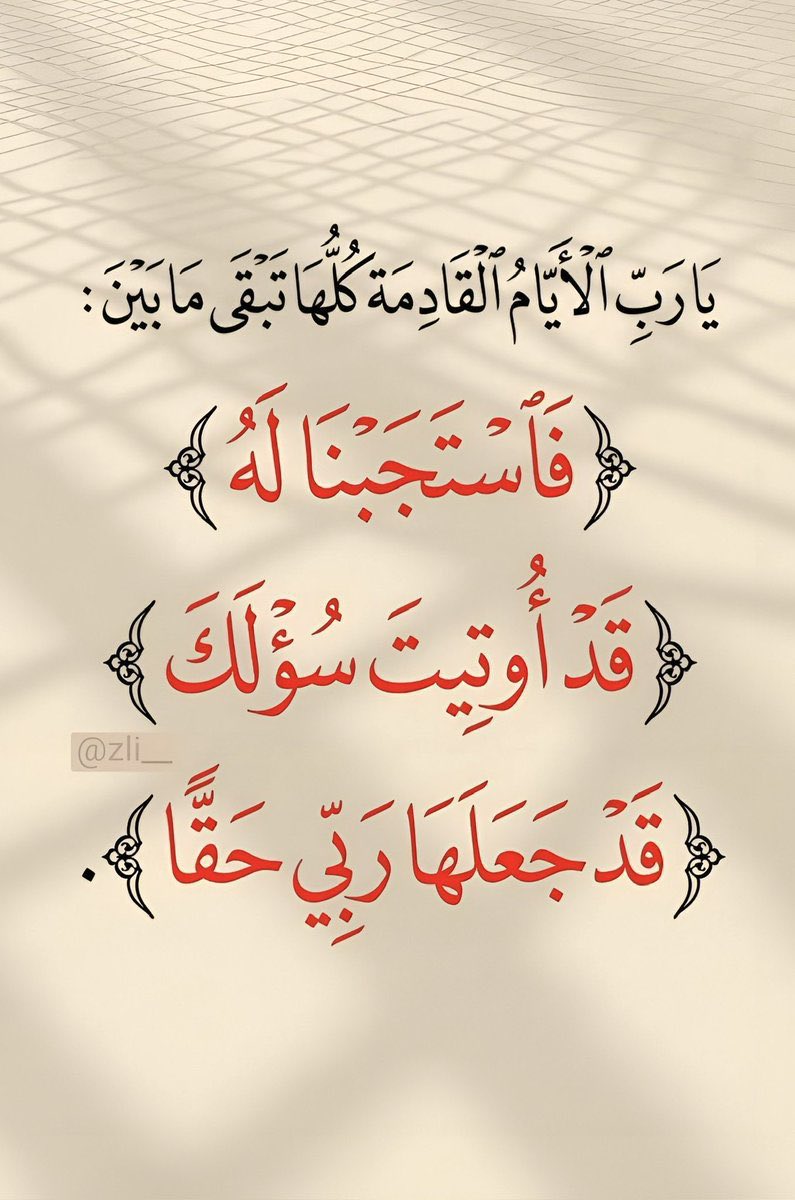 يَا رَبِّ ٱلْأَيَّامُ ٱلْقَادِمَة كُلُّهَا تَبْقَى مَا بَيْنَ :
﴿فَٱسْتَجَبْنَا لَهُ﴾
﴿قَدْ أُوتِيتَ سُؤْلَكَ﴾
@zli__
﴿قَدْ جَعَلَهَا رَبِّي حَقًّا﴾.